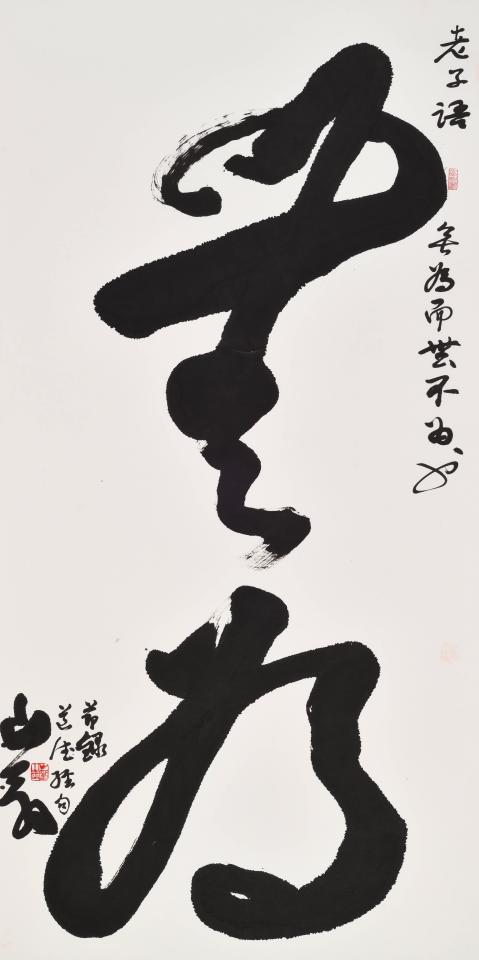 老子語
無為而無不為也
無為
節錄
道德經句
山